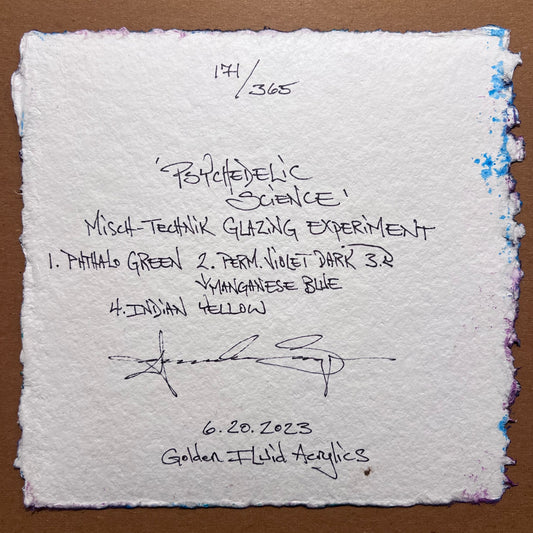 171/365
'PSYCHEDELIC
SCIENCE'
MISCH-TECHNIK GLAZING EXPERIMENT
1. PHTHALO GREEN 2. PERM. VIOLET DARK 3.
MANGANESE BLUE
4. INDIAN YELLOW
6.20.2023
Golden Fluid Acrylics